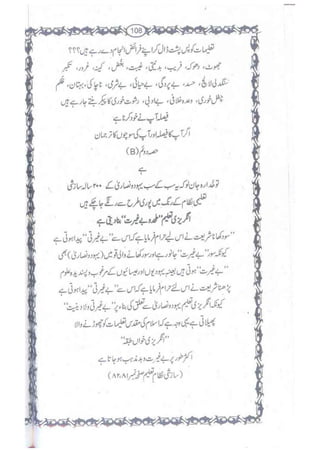 108
تعلیمات کو پس پشت ڈال کر اپنے فرائض انجام دے رہے ہیں؟؟؟
جھوٹ، دھوکہ، فریب، بدنیتی، غیبت، بغض، کینہ، غرور، تکبر
سنگدلی لالچ، حسد، بے پردگی، بے حیائی، بے شرمی، ناچاکی، بہتان، ظلم
ناطل خوری، وعدہ خلافی، بے ادبی، رشوت خوری کا پیکر بنتے جا رہے ہیں
فیصلہ آپ نے خود کرنا ہے
اگر آپ کا فیصلہ اور آپ کی سوچوں کا ترجمان
حصہ دوئم
(B)
ہے
تو خدارہ جان لو کہ یہ سب کے سب یہود و نصاریٰ کے ۲۰۰ سالہ سازشی
تعلیمی نظام کے رنگ میں پوری طرح سے رنگے جا چکے ہیں
انگریزی تعلیم ملحد و بے غیرت ''بنا دیتی ہے
''سود کھانا شریعت نے اس لیے حرام فرمایا ہے کہ اس سے ''بے غیرتی'' پیدا ہوتی ہے
کیونکہ سور ''بے غیرت'' جانور ہے اور سور کھانے والی قومیں (یہود و نصاریٰ) بھی
''بے غیرت'' ہوتی ہیں بعینہ یہودیوں اور عیسائیوں کے مرغوب و پسندیدہ علوم
پڑھنا شریعت نے اس لیے حرام فرمایا ہے کہ اس سے ''بے غیرتی'' پیدا ہوتی ہے
کیونکہ انگریزی تعلیم یہود و نصاریٰ سے تعلق کی بناء پر ''بے غیرتی ولا دینیت''
پھیلاتی ہے یہی وجہ ہے کہ اسلام کی مقدس تعلیمات کو چھوڑنے والا
''انگریزی خواں طبقہ''
اکثر طور پر بے غیرت و بد مذہب ہو جاتا ہے
(سازشی نظام تعلیم صفحہ نمبر ۸۲،۸۱)